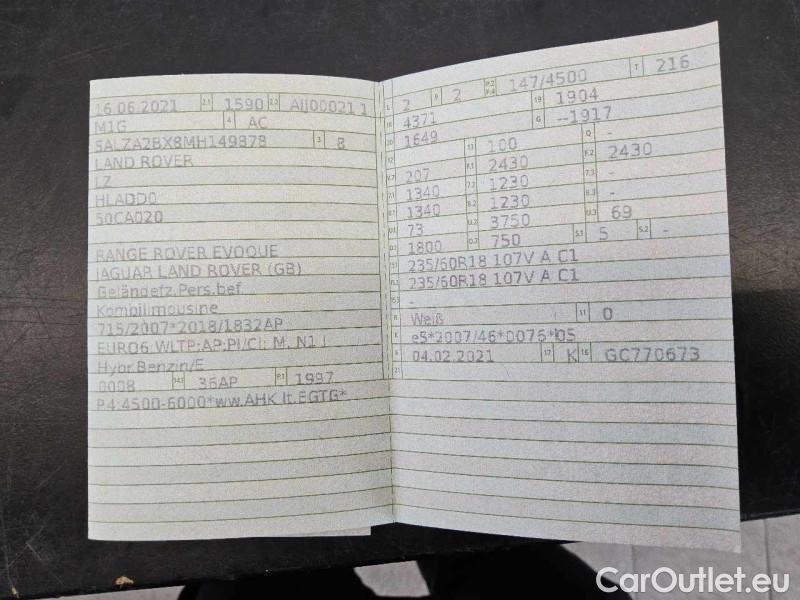 16.06.2021 2.1 1590 2.2 AIJ00021 1
M1G 4 AC
SALZA2BX8MH149878 3 8
LAND ROVER
LZ
HLADD0
50CA020
RANGE ROVER EVOQUE
JAGUAR LAND ROVER (GB)
Geländefz.Pers.bef.
Kombilimousine
715/2007*2018/1832AP
EURO6;WLTP;AP;PI/CI; M, N1 I
Hybr.Benzin/E
0008 14.1 36AP P.1 1997
P4:4500-6000*ww.AHK lt.EGTG*
L 2 9 2 P.2 P.4 147/4500 T 216
18 4371 19 1904
20 1649 G --1917
12 13 100 Q -
V.7 207 F.1 2430 F.2 2430
7.1 1340 7.2 1230 7.3 -
8.1 1340 8.2 1230 8.3 -
U.1 73 U.2 3750 U.3 69
O.1 1800 O.2 750 S.1 5 S.2 -
15.1 235/60R18 107V A C1
15.2 235/60R18 107V A C1
15.3 -
R Weiß 11 0
K e5*2007/46*0076*05
6 04.02.2021 17 K 16 GC770673
21
CarOutlet.eu